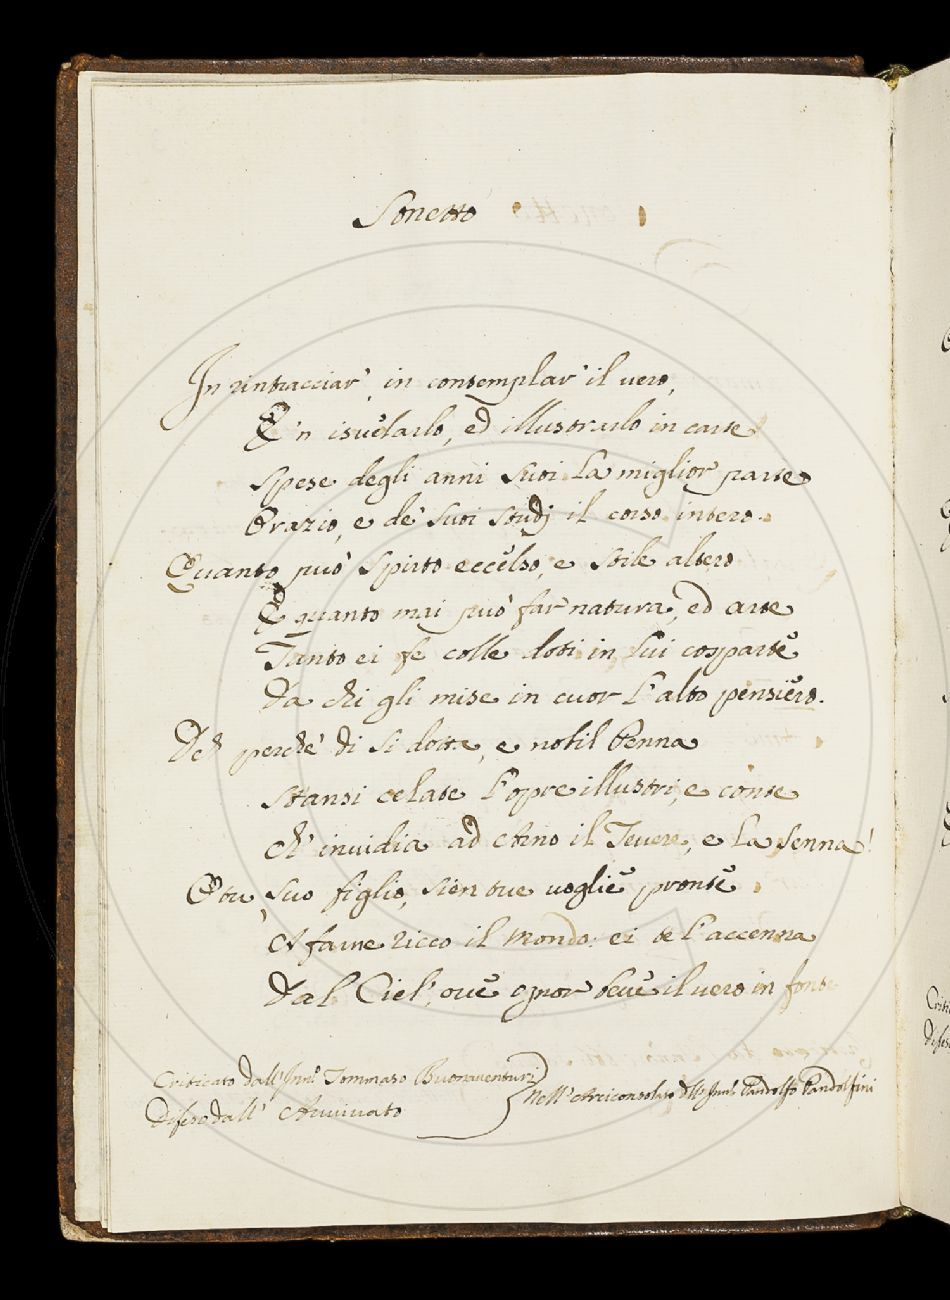 Sonetto
In rintracciar', in contemplar' il vero,
E 'n isvelarlo, ed illustrarlo in carte
Spese degli anni suoi la miglior parte
Orazio, e de' suoi studj il corso intero.
Quanto può spirto eccelso, e stile altero
E quanto mai può far natura, ed arte
Tanto ei fe colle doti in lui cosparte
Da chi gli mise in cuor l'alto pensiero.
Deh perchè di sì dotta, e nobil Penna
Stansi celate l'opre illustri, e conte
Ch' invidia ad Arno il Tevere, e la Senna!
O tu, suo figlio, sien tue voglie pronte
A farne ricco il Mondo: ei te l'accenna
Dal Ciel', ove ognor beve il vero in fonte
Criticato dall' Inn.º Tommaso Buonaventuri
Difeso dall' Avvivato
Nell' Arciconsolato dell' Inn.º Pandolfo Pandolfini